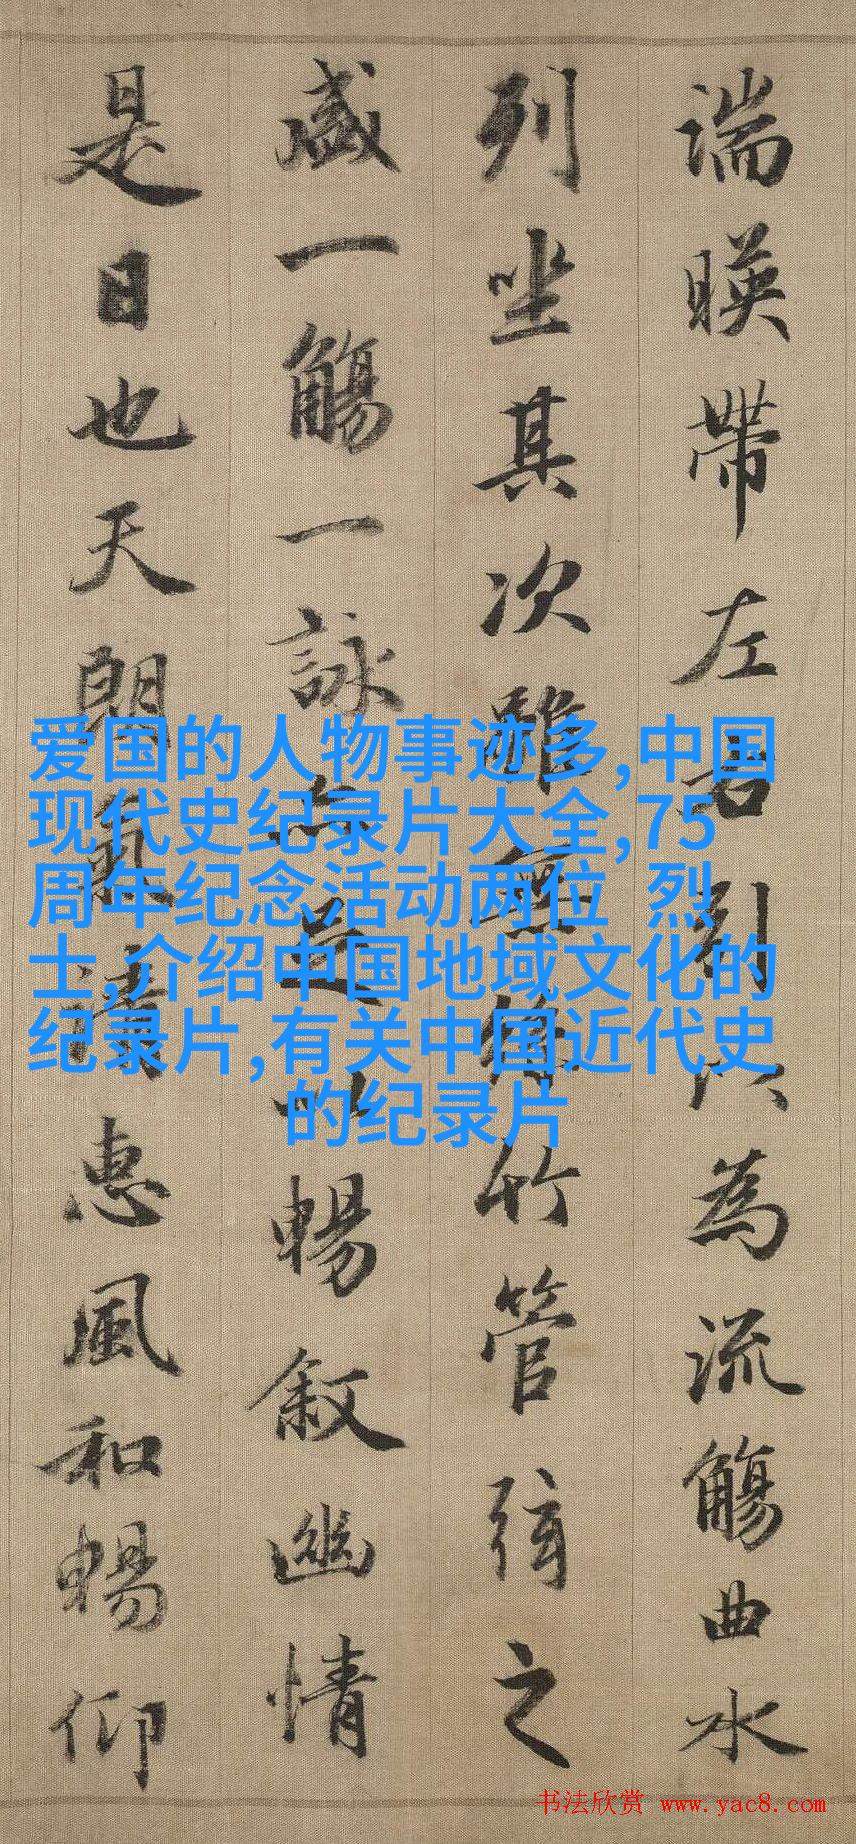 湍暎帶左右引以為流觴曲水
列坐其次雖無絲竹管弦之
盛一觴一詠亦足以暢叙幽情
是日也天朗氣清惠風和暢仰
爱国的人物事迹多,中国
现代史纪录片大全,75
周年纪念活动两位 烈
士,介绍中国地域文化的
纪录片,有关中国近代史
的纪录片
书法欣赏 www.yac8.com